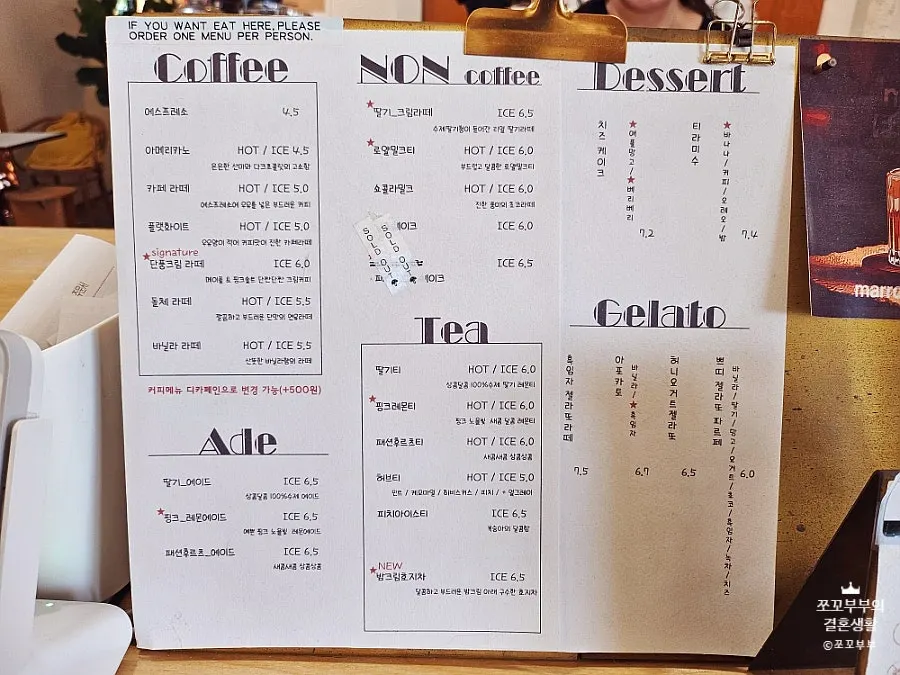 IF YOU WANT EAT HERE, PLEASE
ORDER ONE MENU PER PERSON.
Coffee
에스프레소 4.5
아메리카노 HOT / ICE 4.5
은은한 산미와 다크초콜릿의 고소함
카페 라떼 HOT / ICE 5.0
에스프레소에 우유를 넣은 부드러운 커피
플랫화이트 HOT / ICE 5.0
우유양이 적어 커피맛이 진한 카페라떼
signature
★단풍크림 라떼 ICE 6.0
메이플 & 핑크솔트 단짠단짠 크림커피
돌체 라떼 HOT / ICE 5.5
달콤하고 부드러운 단맛의 연유라떼
바닐라 라떼 HOT / ICE 5.5
산뜻한 바닐라향의 라떼
커피메뉴 디카페인으로 변경 가능(+500원)
Ade
딸기_에이드 ICE 6.5
상콤달콤 100%수제 에이드
★핑크_레몬에이드 ICE 6.5
예쁜 핑크 노을빛 레몬에이드
패션후르츠_에이드 ICE 6.5
새콤새콤 상콤상콤
NON coffee
★딸기_크림라떼 ICE 6.5
수제딸기청이 들어간 리얼 딸기라떼
★로얄밀크티 HOT / ICE 6.0
부드럽고 달콤한 로얄밀크티
쇼콜라밀크 HOT / ICE 6.0
진한 풍미의 초코라떼
SOLD OUT
SOLD OUT
이크 ICE 6.0
ICE 6.5
이크
Tea
딸기티 HOT / ICE 6.0
상콤달콤 100%수제 딸기 레몬티
★핑크레몬티 HOT / ICE 6.0
핑크 노을빛 새콤 달콤 레몬티
패션후르츠티 HOT / ICE 6.0
새콤새콤 상콤상콤
허브티 HOT / ICE 5.0
민트 / 캐모마일 / 히비스커스 / 피치 / * 얼그레이
피치아이스티 ICE 6.5
복숭아의 달콤함
NEW
★밤크림호지차 ICE 6.5
달콤하고 부드러운 밤크림 아래 구수한 호지차
Dessert
치즈케이크
★애플망고/★베리베리
7.2
티라미수
★바나나/커피/오레오/밤
7.4
Gelato
흑임자 젤라또라떼
7.5
아포카토
바닐라/★흑임자
6.7
허니요거트젤라또
6.5
쁘띠 젤라또 파르페
바닐라/딸기/망고/요거트/초코/흑임자/녹차/치즈
6.0
marro
쪼꼬부부의
결혼생활
©쪼꼬부부